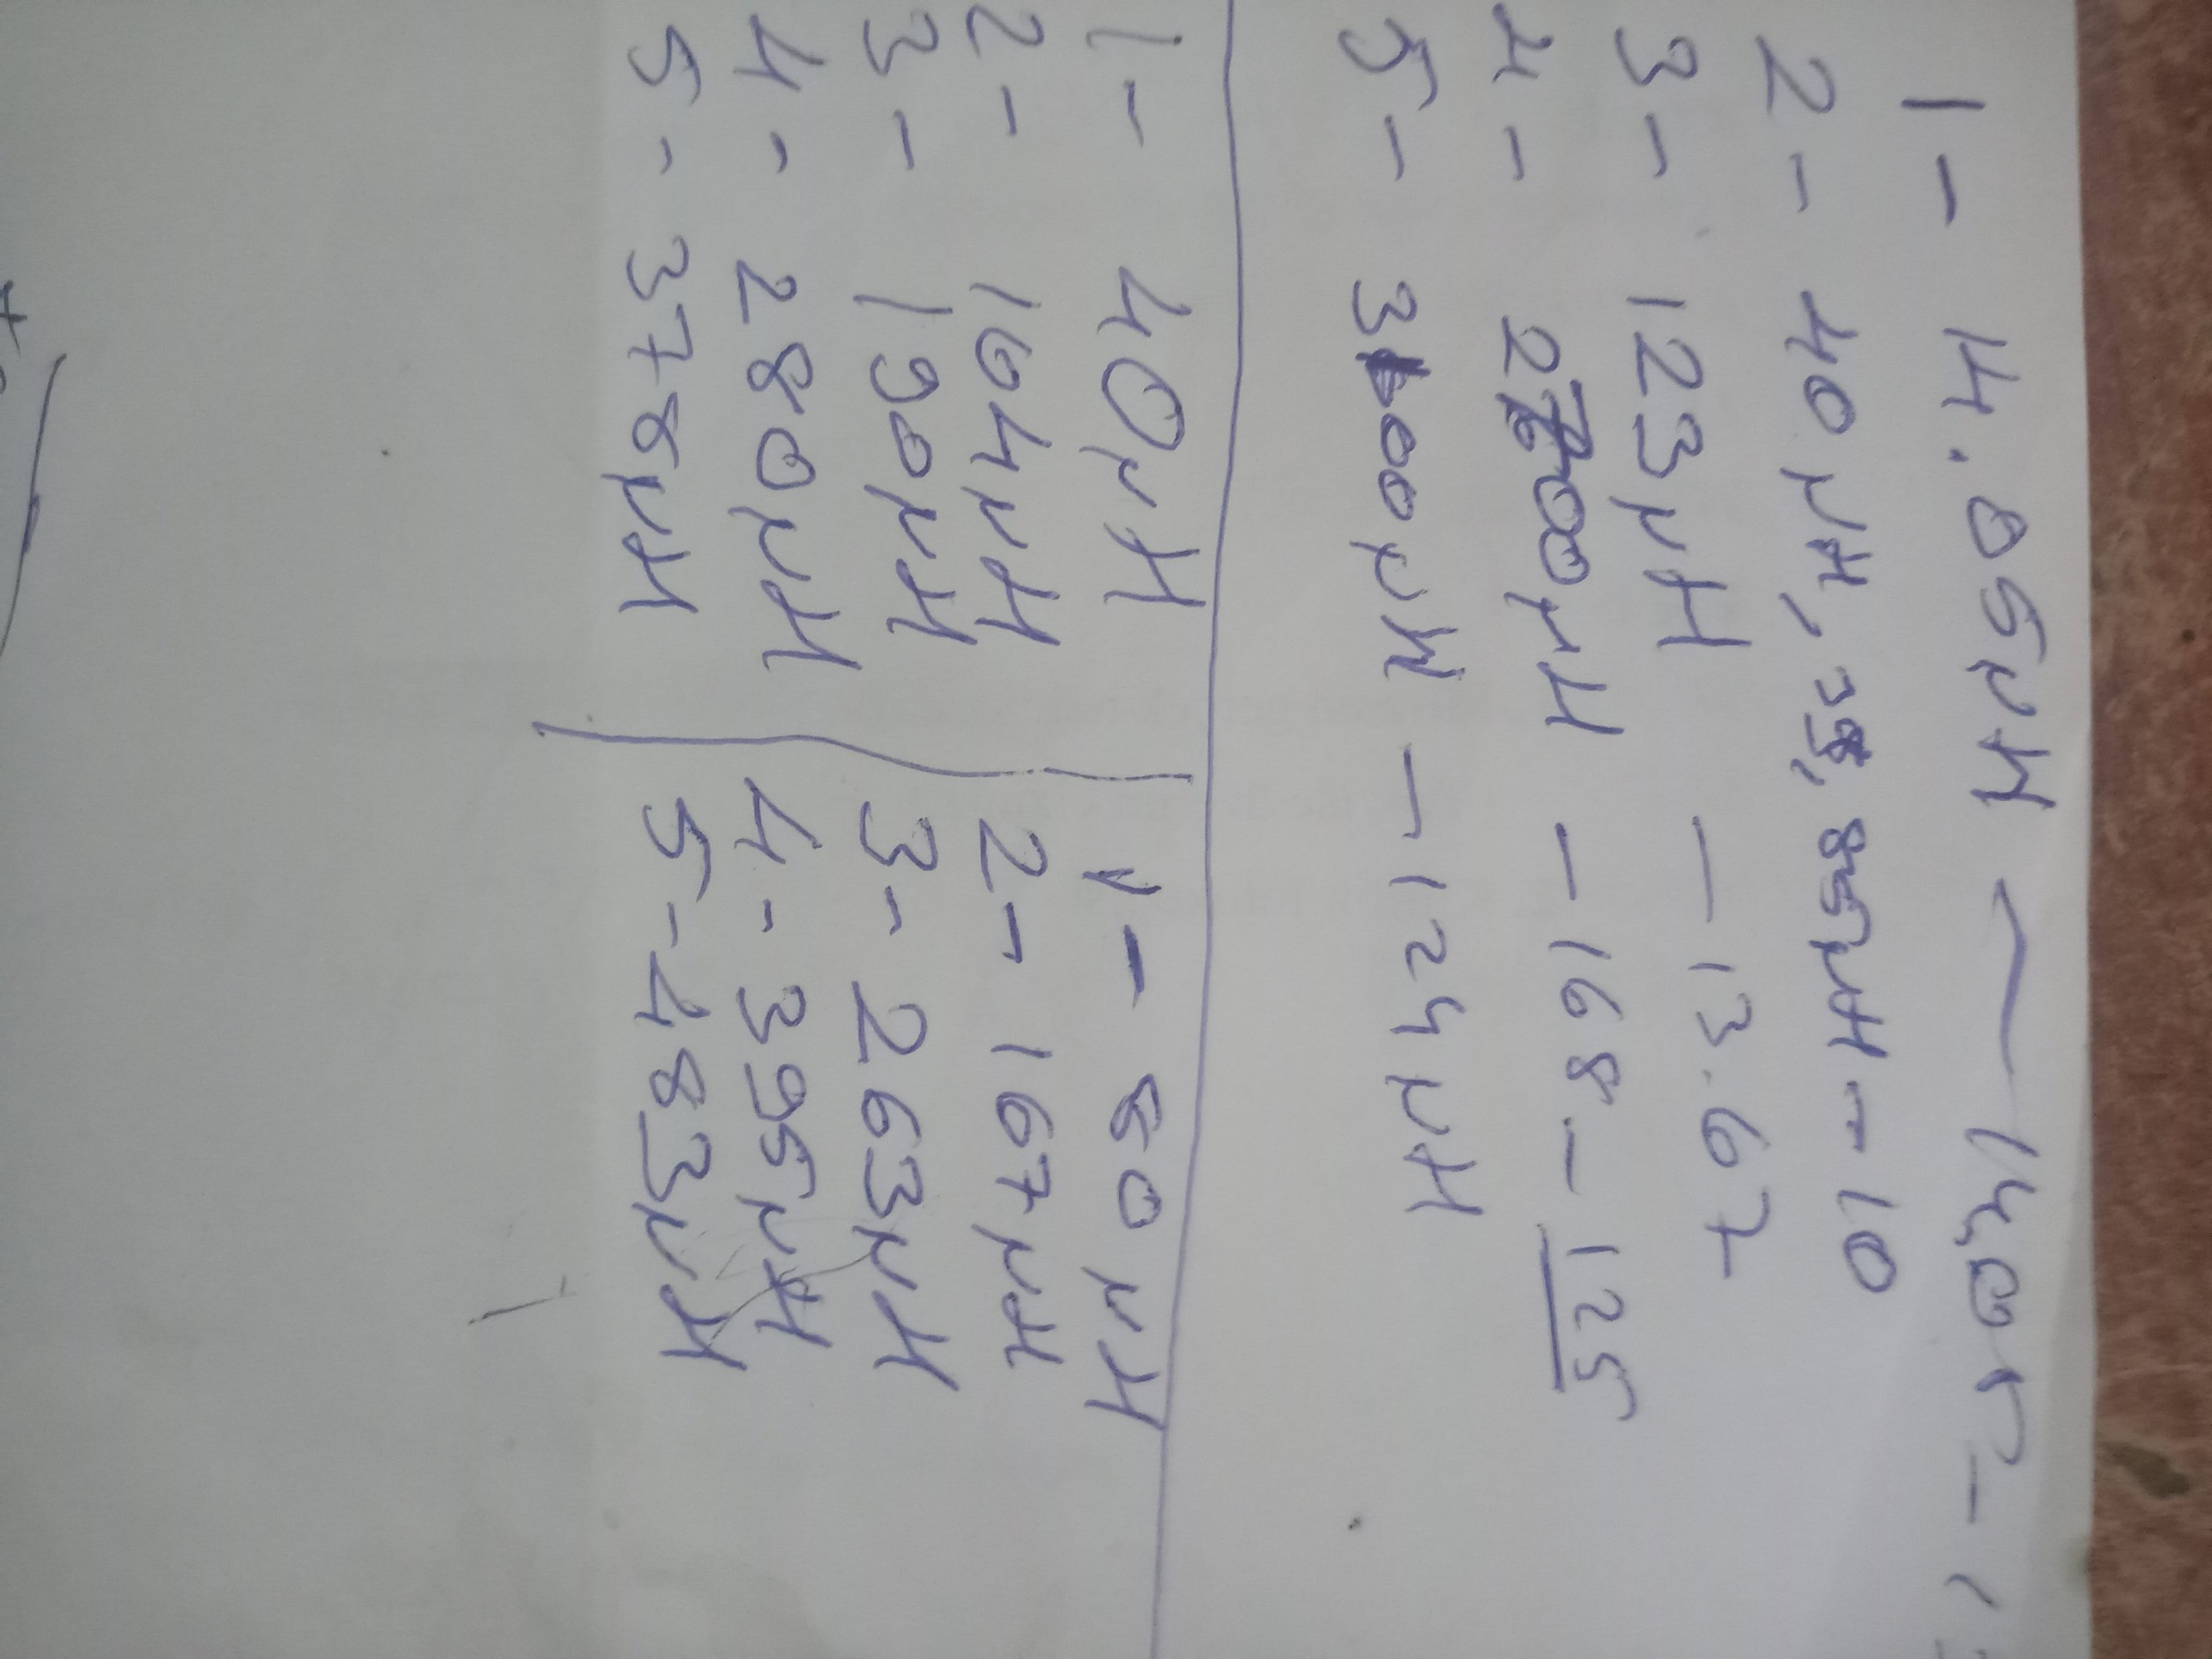 1 - 14.05μH — 14,05 - 1
2 - 40μH, 35, 85μH - 10
3 - 123μH — 13.67
4 - 2700μH - 168 - 125
5 - 3600μH - 124μH
1 - 40μH
2 - 164μH
3 - 190μH
4 - 280μH
5 - 378μH
1 - 80μH
2 - 167μH
3 - 263μH
4 - 395μH
5 - 483μH